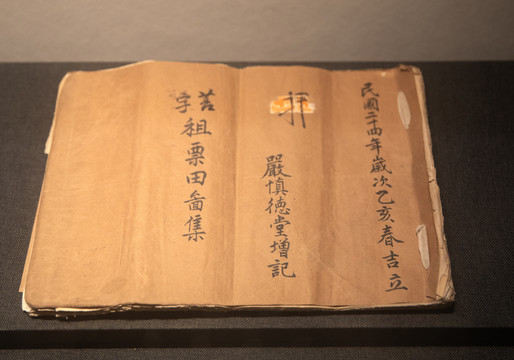 民國二十四年歲次乙亥春吉立
拜
嚴慎德堂增記
苔字
祖票田畝集